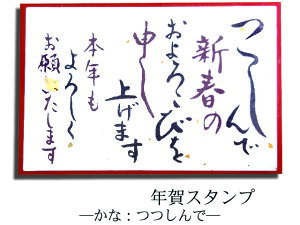 つつしんで
新春の
およろこびを
申し
上げます
本年も
よろしく
お願いたします
年賀スタンプ
―かな：つつしんで―